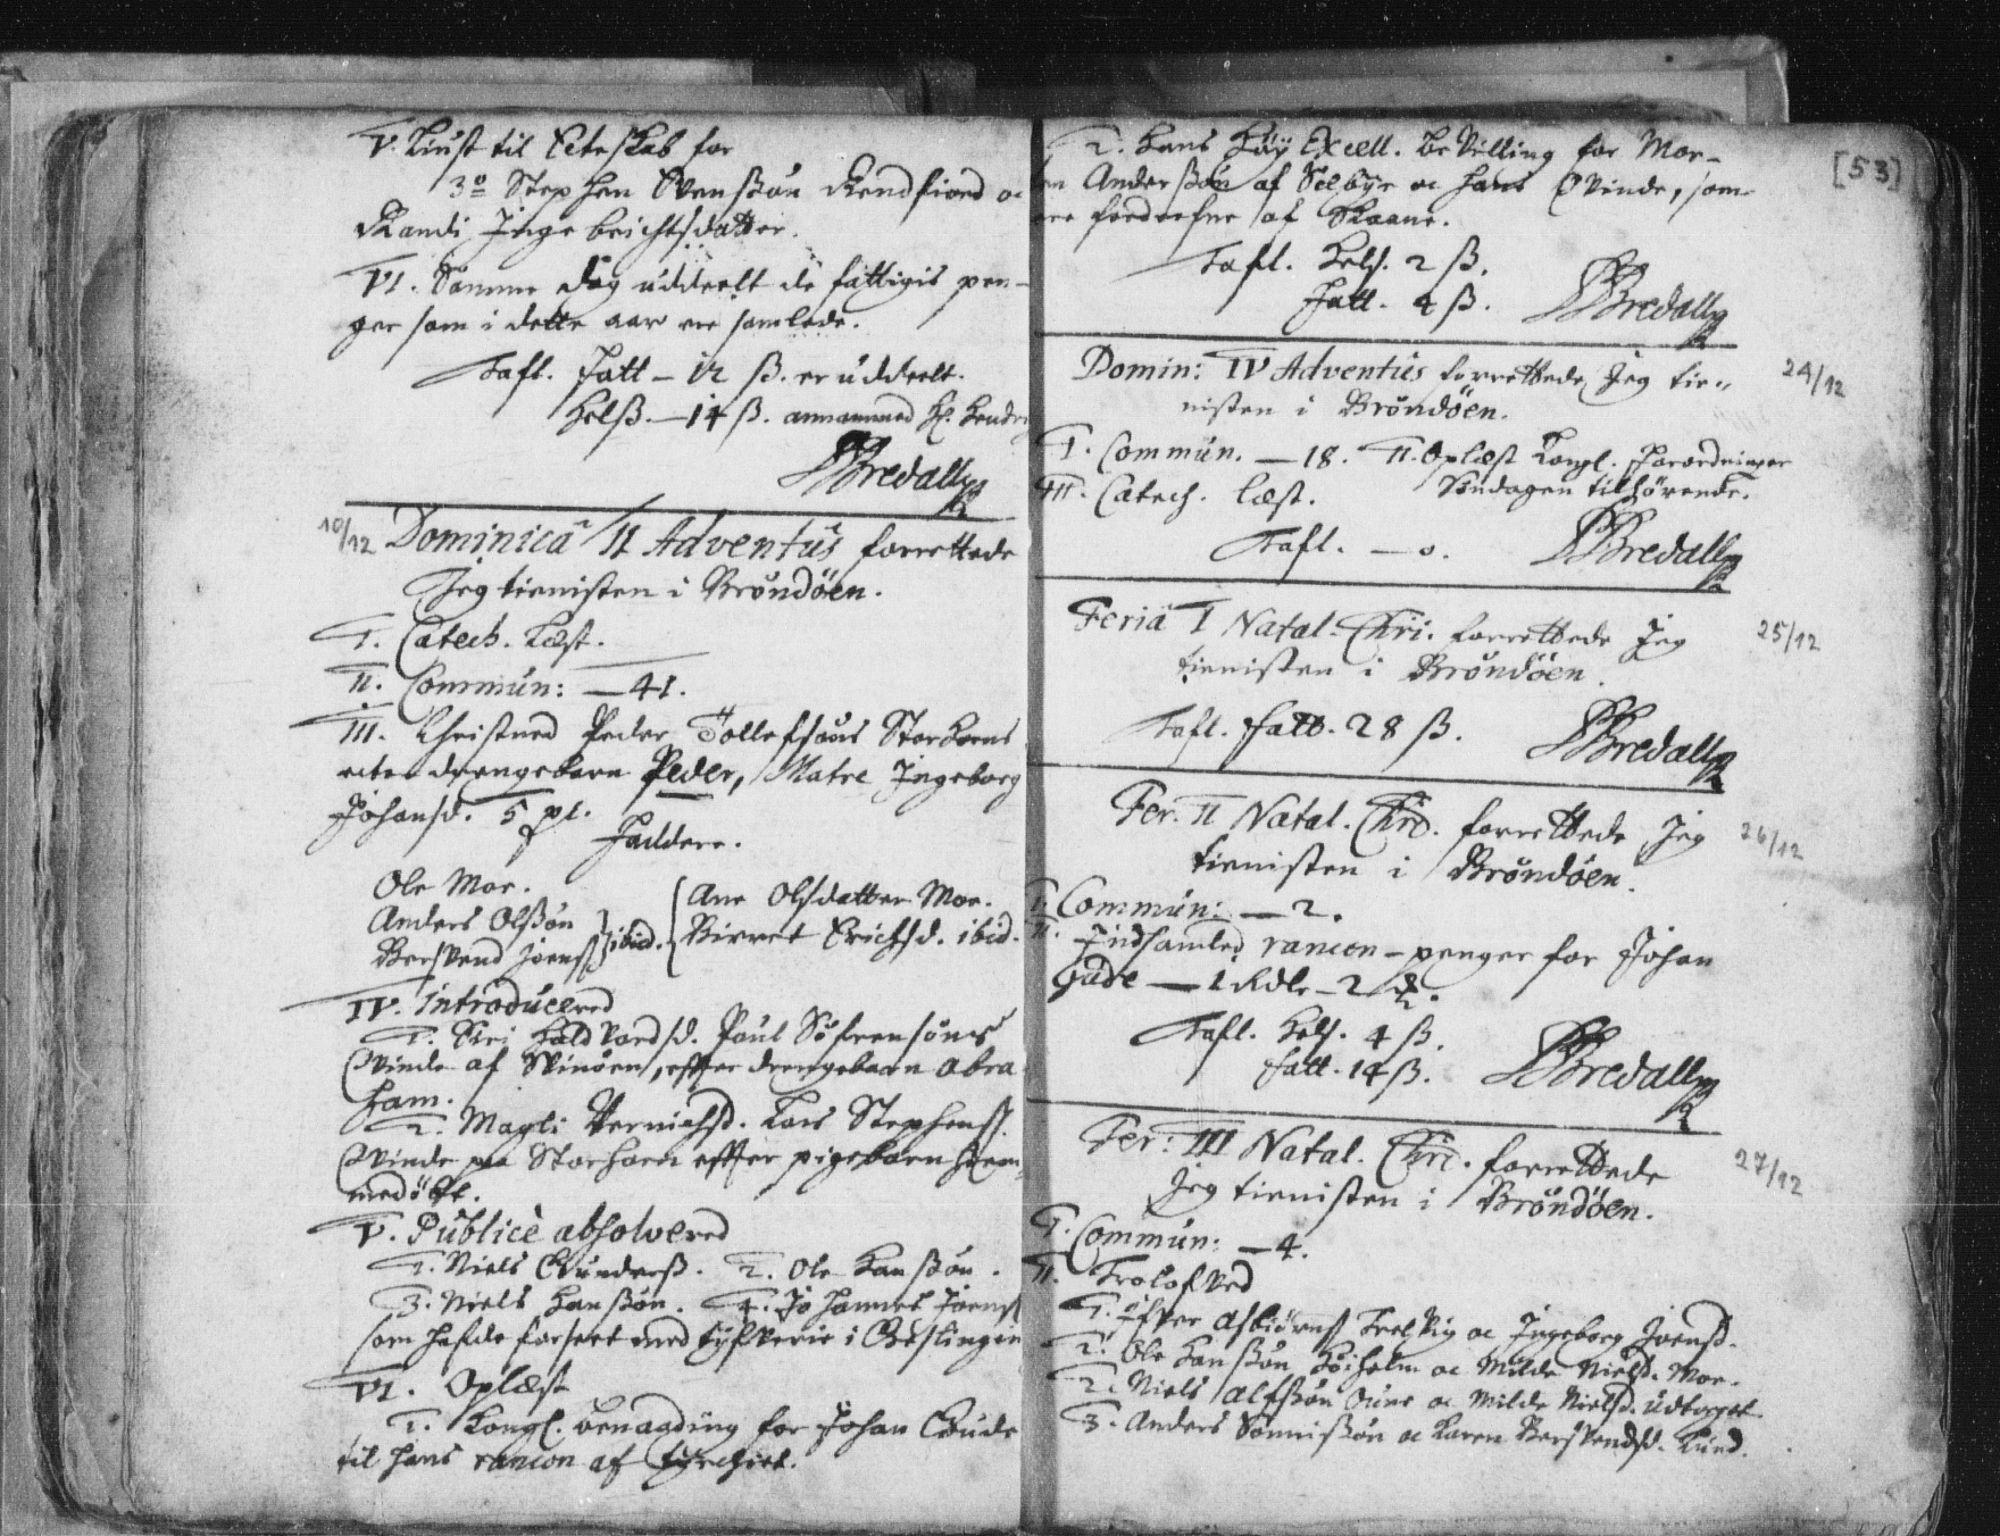 V. Liust til Ecteskab for
3º Stephen Svenssön Rendfiord oc
Randi Ingebrichtsdatter.
VI. Samme dag uddeelt de fattigis pen-
ger som i dette aar ere samlede.
Tafl. Fatt - 12 ß. er uddeelt.
Helß. - 14 ß. annammed Hl. Hendri
Bredall
10/12 Dominica II Adventus forrettede
Jeg tienisten i Brøndöen.
I. Catech. Læst.
II. Commun: - 41.
III. Christned Peder Tollefsöns Storhorns
ecte drengebarn Peder, Matre Ingeborg
Johansd. 5 pt.
Faddere.
Ole Moe.
Anders Olssön
Berswend Joenß } ibid.
{ Ane Olsdatter Moe.
Birret Erichsd. ibid.
IV. Introducered
1. Siri Haldvordsd. Poul Söfrensöns
Qvinde af Svinöen, effter drengebarn Abra
ham.
2. Magli Bernichsd. Lars Stephenss.
Qvinde paa Storhorn effter pigebarn hiem-
medöbt.
V. Publicè absolvered
1. Niels Gunderß. 2. Ole Hanssön.
3. Niels Hanssön. 4. Johannes Joenss
som hafde forseet med tyfverie i Gieslingen
VI. Oplæst
1. Kongl. benaading for Johan Gude
til hans rancon af Tyrchiet.
[53]
2. Hans Høÿ Excell. bevilling for Mor-
ten Anderssön af Selbye oc hans Qvinde, som
ere fordrefne af Skaane.
Tafl. Hels. 2 ß.
Fatt. 4 ß.
Bredall
Domin: IV Adventus forrettede Jeg tie-
nisten i Brøndöen.
24/12
I. Commun. - 18. II. Oplæst Kongl. Forordninger
III. Catech. læst. Søndagen tilhörende.
Tafl. - 0.
Bredall
Feria I Natal. Chri. forrettede Jeg
tienisten i Brøndöen.
25/12
Tafl. Fatt. 28 ß.
Bredall
Fer. II Natal. Chri. forrettede Jeg
tienisten i Brøndöen.
26/12
I. Commun: - 2.
II. Indsamled rancon-penger for Johan
Gude - 1 Rdlr - 2
Tafl. Hels. 4 ß.
Fatt. 14 ß.
Bredall
Fer: III Natal. Chri. forrettede
Jeg tienisten i Brøndöen.
27/12
I. Commun: - 4.
II. Trolofved
1. Ifver Asbiörnß Trelvig oc Ingeborg Joensd.
2. Ole Hanssön Höiholm oc Milde Nielsd. Moe.
2. Niels Alfssön oc Milde Nielsd. Udtorget
3. Anders Sönnissön oc Karen Bersvendsd. Lund.